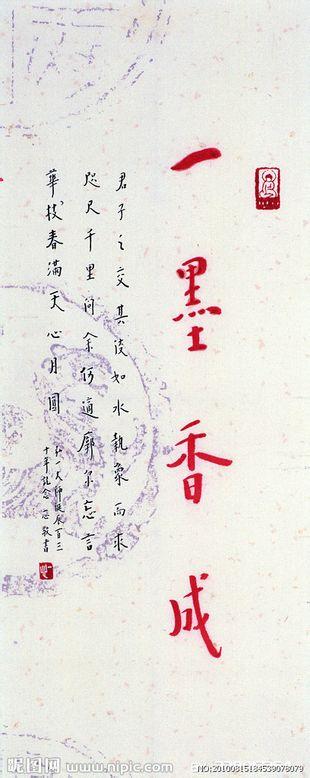 一墨香成
君子之交其淡如水執象而求
咫尺千里問余何適廓尔忘言
華枝春满天心月圓
弘一大师诞辰百三
十年纪念
敬書
昵图网 www.nipic.com
NO:20100815184539078079